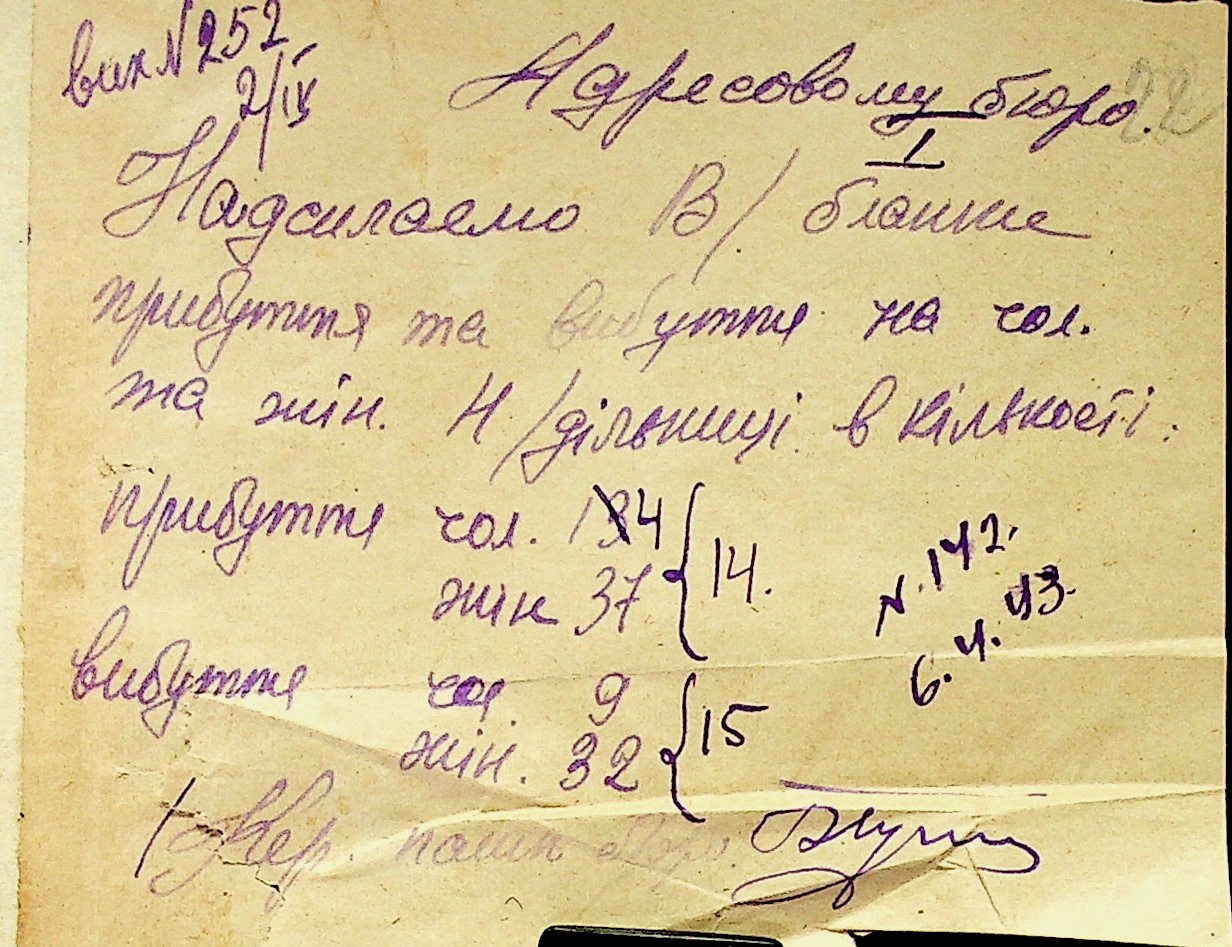 вих N 252
2/IV
Адресовому бюро. 22
I
Надсилаємо В/ бланки
прибуття та вибуття на чол.
та жін. Н/дільниці в кількості:
прибуття чол. 134 { 14.
жін 37
N. 142.
6. 4. 43.
вибуття чол. 9 { 15
жін. 32
/Кер. пашп бюро.